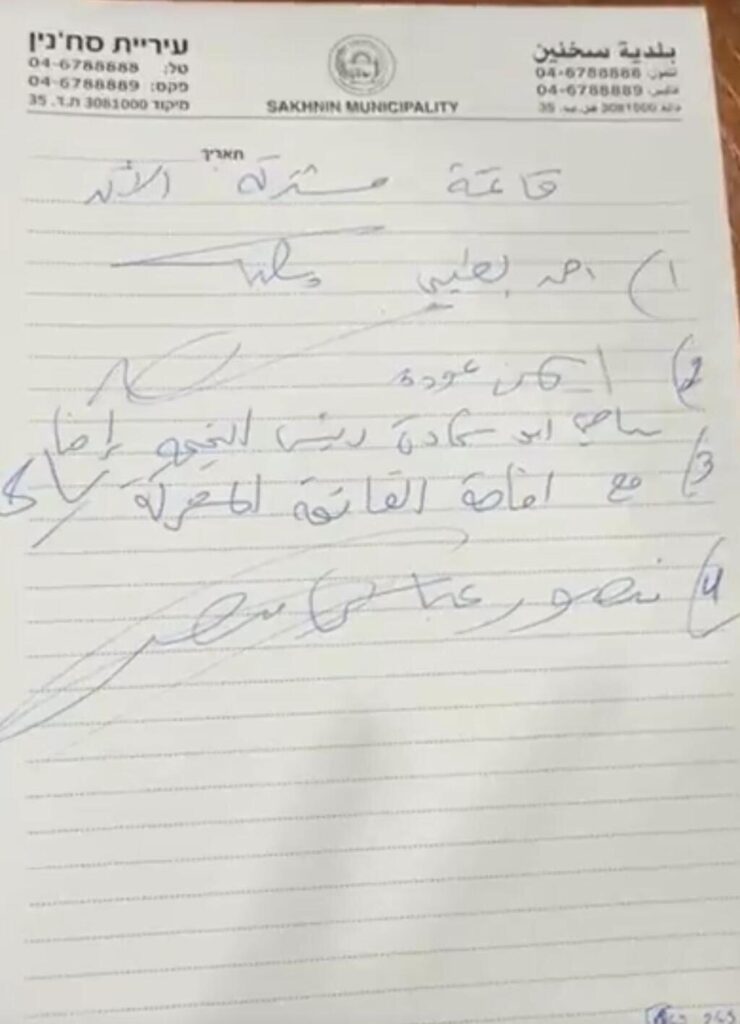 עיריית סח'נין
טל: 04-6788888
פקס: 04-6788889
מיקוד 3081000 ת.ד. 35
SAKHNIN MUNICIPALITY
بلدية سخنين
تلفون: 04-6788888
فاكس: 04-6788889
35 .ص.ب 3081000
תאריך
قائمة مشتركة الآن
1) احمد الطيبي
2) ايمن عودة
3) سامي ابو شحادة رئيس التجمع
مع اقامة القائمة المشتركة
4) منصور عباس